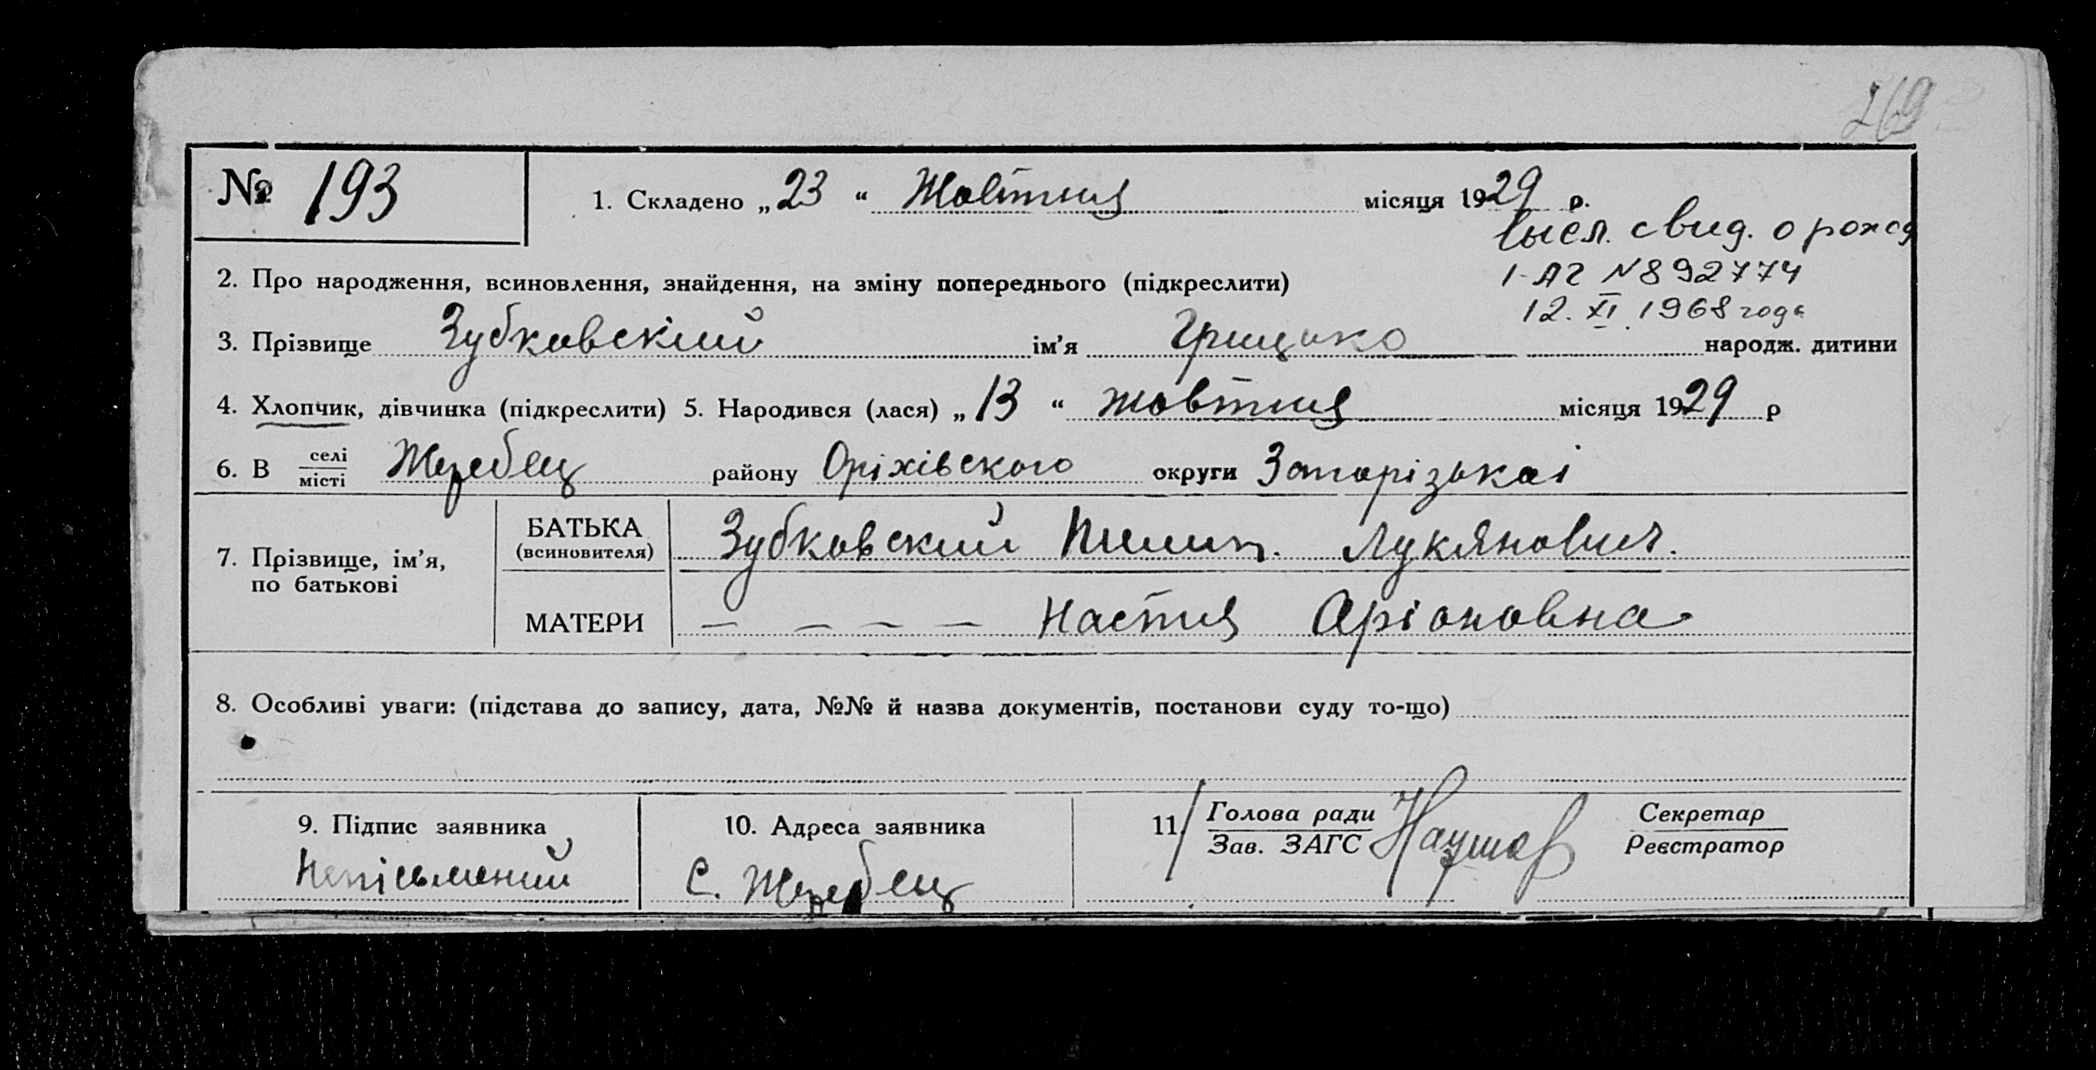 269
№ 193
1. Складено „23“ Жовтня місяця 1929 р.
высл. свид. о рожд
I-АГ N 892774
12. XI. 1968 года
2. Про народження, всиновлення, знайдення, на зміну попереднього (підкреслити)
3. Прізвище Зубковский ім’я Грицько народж. дитини
4. Хлопчик, дівчинка (підкреслити) 5. Народився (лася) „13“ жовтня місяця 1929 р
6. В селі місті Жеребец району Оріхівского округи Запорізькоі
7. Прізвище, ім’я, по батькові
БАТЬКА (всиновителя) Зубковский Пилип. Лукянович.
МАТЕРИ — — — — Настия Аріоновна
8. Особливі уваги: (підстава до запису, дата, №№ й назва документів, постанови суду то-що)
9. Підпис заявника
Непісьмений
10. Адреса заявника
с. Жеребец
11. Голова ради
Зав. ЗАГС
Секретар
Реєстратор